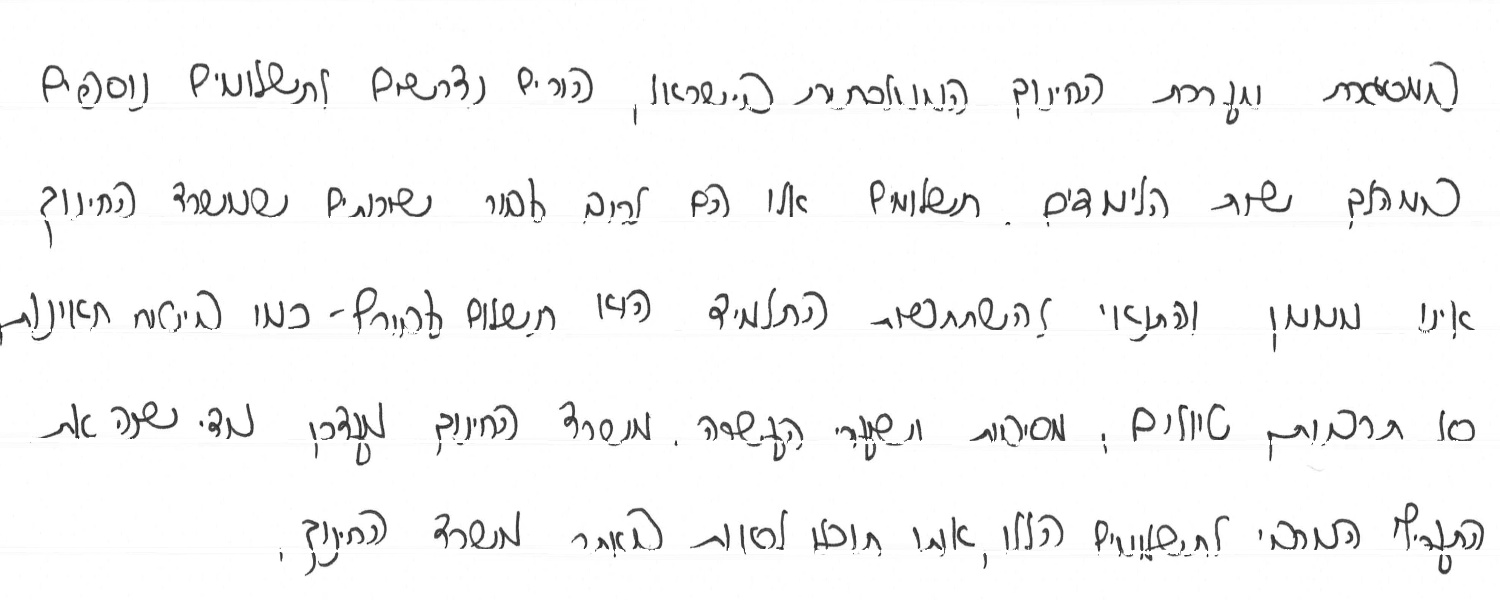 במסגרת מערכת החינוך הממלכתית בישראל, הורים נדרשים לתשלומים נוספים
במהלך שנת הלימודים. תשלומים אלו הם לרוב עבור שירותים שמשרד החינוך
אינו מממן והתנאי להשתתפות התלמיד הוא תשלום עבורך - כמו ביטוח תאונות,
סל תרבות, טיולים, מסיבות ושעורי העשרה. משרד החינוך מעדכן מדי שנה את
התעריף המרבי לתשלומים הללו, אותו תוכלו לראות באתר משרד החינוך.